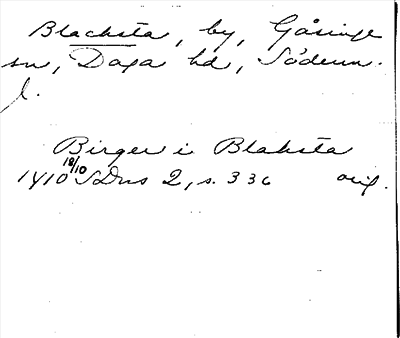 Blacksta, by, Gåsinge
sn, Daga hd, Söderm.
l.
Birger i Blaksta
1410 18/10 SDns 2, s. 336 orig.